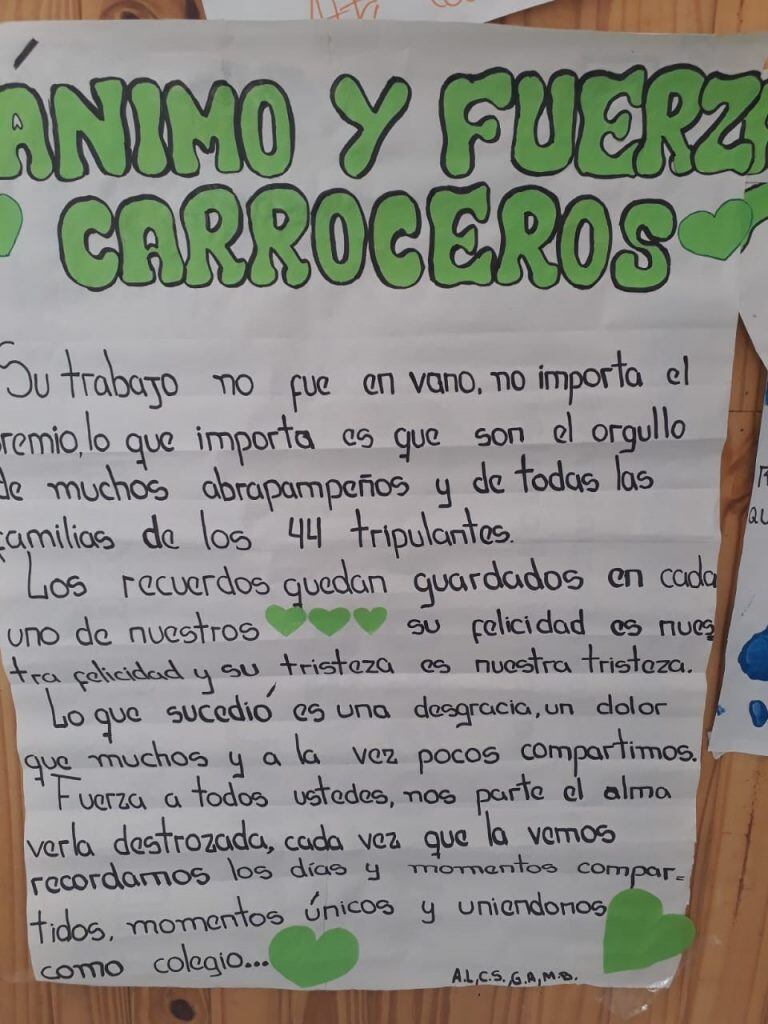 ÁNIMO Y FUERZA
CARROCEROS
Su trabajo no fue en vano, no importa el
remio, lo que importa es que son el orgullo
de muchos abrapampeños y de todas las
familias de los 44 tripulantes.
Los recuerdos quedan guardados en cada
uno de nuestros 💚💚💚 su felicidad es nues
tra felicidad y su tristeza es nuestra tristeza.
Lo que sucedió es una desgracia, un dolor
que muchos y a la vez pocos compartimos.
Fuerza a todos ustedes, nos parte el alma
verla destrozada, cada vez que la vemos
recordamos los días y momentos compar=
tidos, momentos únicos y uniendonos
como colegio...
A.L,C.S.,G.A,M.B.
QU